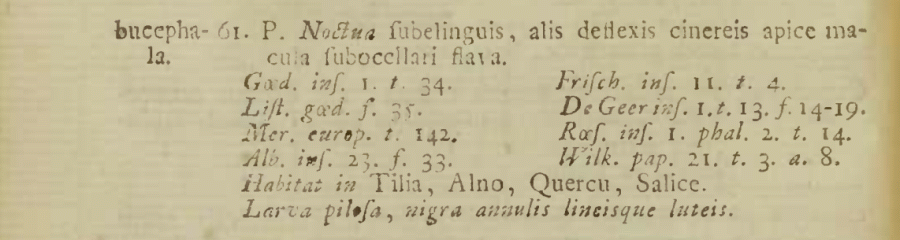 bucepha- 61. P. Noctua ſubelinguis, alis deflexis cinereis apice ma-
la. cula ſubocellari flava.
Gœd. inſ. 1. t. 34. Friſch. inſ. 11. t. 4.
Liſt. gœd. f. 35. De Geer inſ. 1. t. 13. f. 14-19.
Mer. europ. t. 142. Rœſ. inſ. 1. phal. 2. t. 14.
Alb. inſ. 23. f. 33. Wilk. pap. 21. t. 3. a. 8.
Habitat in Tilia, Alno, Quercu, Salice.
Larva piloſa, nigra annulis lineisque luteis.